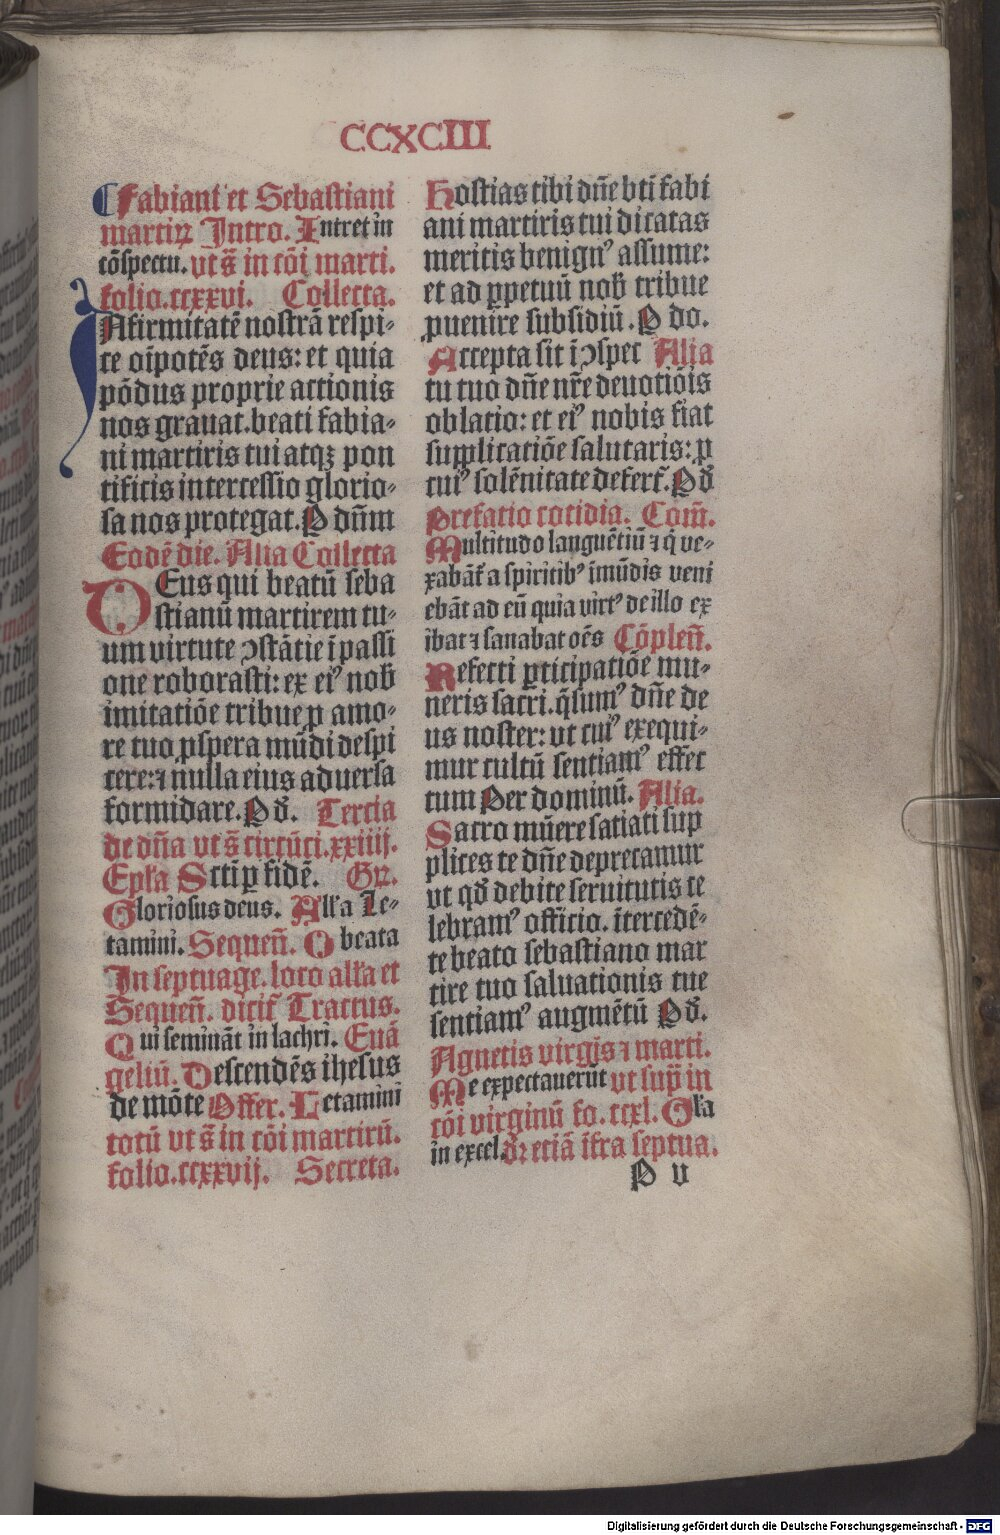 CCXCIII
Fabiani et Sebastiani
martiꝝ Intro. Intret in
cōspectu. vt s̄ in cōi marti.
folio.ccxxvi. Collecta.
INfirmitatē nostrā respi-
ce oīpotēs deus: et quia
pōdus proprie actionis
nos grauat.beati fabia-
ni martiris tui atqꝫ pon
tificis intercessio glorio-
sa nos protegat.P dn̄m
Eodē die. Alia Collecta
DEus qui beatū seba
stianū martirem tu-
um virtute ↄstātie ī passi
one roborasti: ex eiꝰ nob̄
imitatiōe tribue ꝑ amo-
re tuo ꝓspera mūdi despi
cere: ⁊ nulla eius aduersa
formidare.P d̄. Tercia
de dn̄a vt s̄ circūci.xxiiij.
Epl̄a Scti ꝑ fidē. Gꝝ.
Gloriosus deus. All̄a Le-
tamini. Sequen̄. O beata
In septuage. loco all̄a et
Sequen̄. dicit᷑ Tractus.
Qui semināt in lachri. Euā
geliū. Descendēs ihesus
de mōte Offer. Letamini
totū vt s̄ in cōi martirū.
folio.ccxxvij. Secreta.
Hostias tibi dn̄e bti fabi
ani martiris tui dicatas
meritis benignꝰ assume:
et ad ꝑpetuū nob̄ tribue
ꝓuenire subsidiū.P do.
Accepta sit ī ↄspec Alia
tu tuo dn̄e nr̄e deuotiōis
oblatio: et eiꝰ nobis fiat
supplicatiōe salutaris: ꝓ
cuiꝰ solēnitate defert᷑.P d̄
Prefatio cotidia. Com̄.
Multitudo languētiū ⁊ q̄ ve-
xabāt᷑ a spiritibꝰ īmūdis veni
ebāt ad eū quia virtꝰ de illo ex
ibat ⁊ sanabat oēs Cōplen̄.
Refecti ꝑticipatiōe mu-
neris sacri.q̄sumꝰ dn̄e de
us noster: vt cuiꝰ exequi-
mur cultū sentiamꝰ effec
tum Per dominū. Alia.
Sacro mūere satiati sup
plices te dn̄e deprecamur
vt qd̄ debite seruitutis ce
lebramꝰ officio. ītercedē-
te beato sebastiano mar
tire tuo saluationis tue
sentiamꝰ augmētū P d̄.
Agnetis virgīs ⁊ marti.
Me expectauerūt vt sup̄ in
cōi virginū fo. ccxl. Gl̄a
in excel. dꝛ etiā īfra septua.
P v
Digitalisierung gefördert durch die Deutsche Forschungsgemeinschaft - DFG